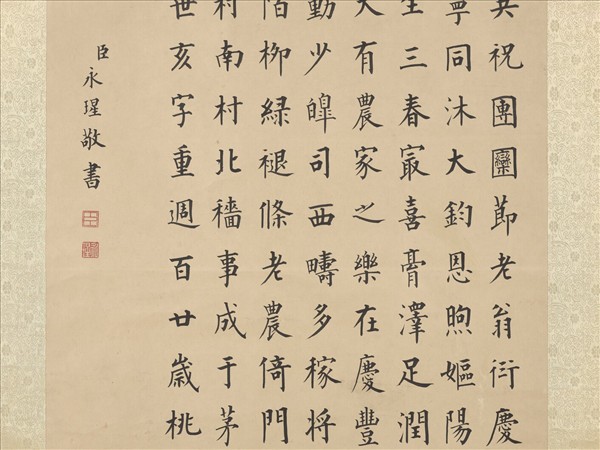 祝團圞節老翁衎慶
寧同沐大鈞恩煦嫗陽
生三春冣喜膏澤足潤
有農家之樂在慶豐
動少皥司西疇多稼将
陌栁綠褪條老農倚門
村南村北穡事成于茅
世亥字重週百廿歲桃
臣永瑆敬書